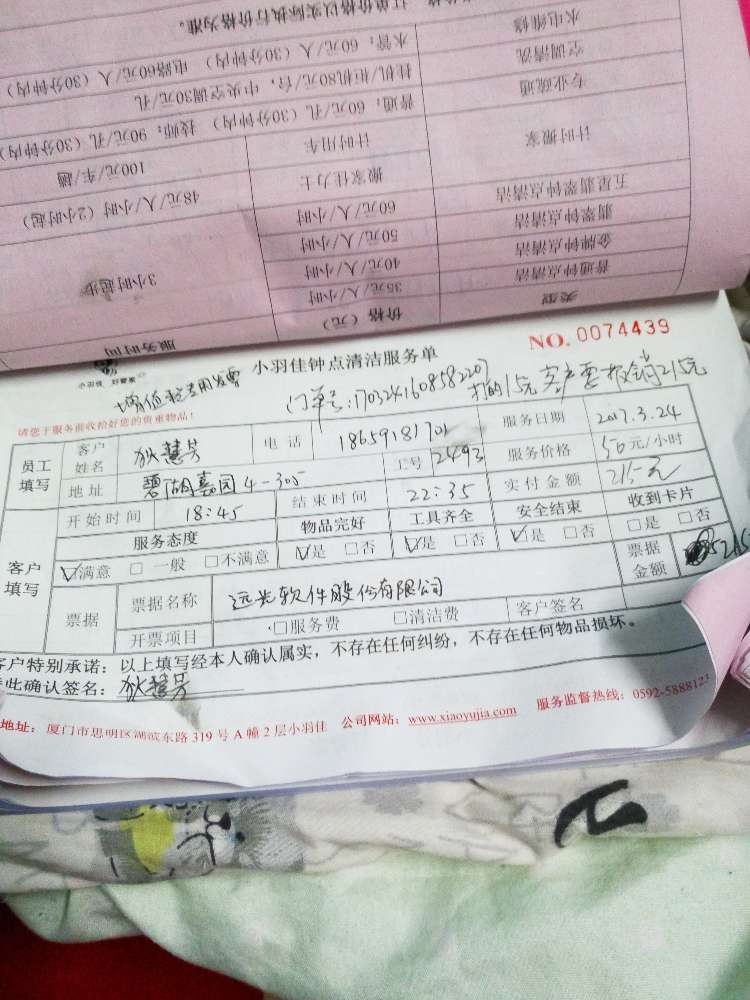 服务时间
价格（元）
类型
3小时起步
35元/人/小时
普通钟点清洁
40元/人/小时
金牌钟点清洁
50元/人/小时
翡翠钟点清洁
60元/人/小时
五星翡翠钟点清洁
48元/人/小时（2小时起）
搬家佳力士
计时搬家
100元/车/趟
计时用车
普通：60元/孔（30分钟内） 技师：90元/孔（30分钟内）
专业疏通
挂机/柜机80元/台，中央空调30元/孔
空调清洗
水管：60元/人（30分钟内） 电路60元/人（30分钟内）
水电维修
订单价格以实际执行价格为准。
小羽佳 好管家
小羽佳钟点清洁服务单
NO. 0074439
增值税专用发票
订单号:1703241608582207
打的15元客户要报销215元
请您于服务前收拾好您的贵重物品！
员工填写
客户姓名 狄慧芳 电话 18659181702 服务日期 2017.3.24
地址 碧湖嘉园4-305 工号 2493 服务价格 50元/小时
开始时间 18:45 结束时间 22:35 实付金额 215元
客户填写
服务态度 物品完好 工具齐全 安全结束 收到卡片
☑满意 □一般 □不满意 ☑是 □否 ☑是 □否 ☑是 □否 □是 □否
票据 票据名称 远光软件股份有限公司 票据金额 215
开票项目 □服务费 □清洁费 客户签名
客户特别承诺：以上填写经本人确认属实，不存在任何纠纷，不存在任何物品损坏。
此确认签名：狄慧芳
地址：厦门市思明区湖滨东路319号A幢2层小羽佳 公司网站：www.xiaoyujia.com 服务监督热线：0592-5888123